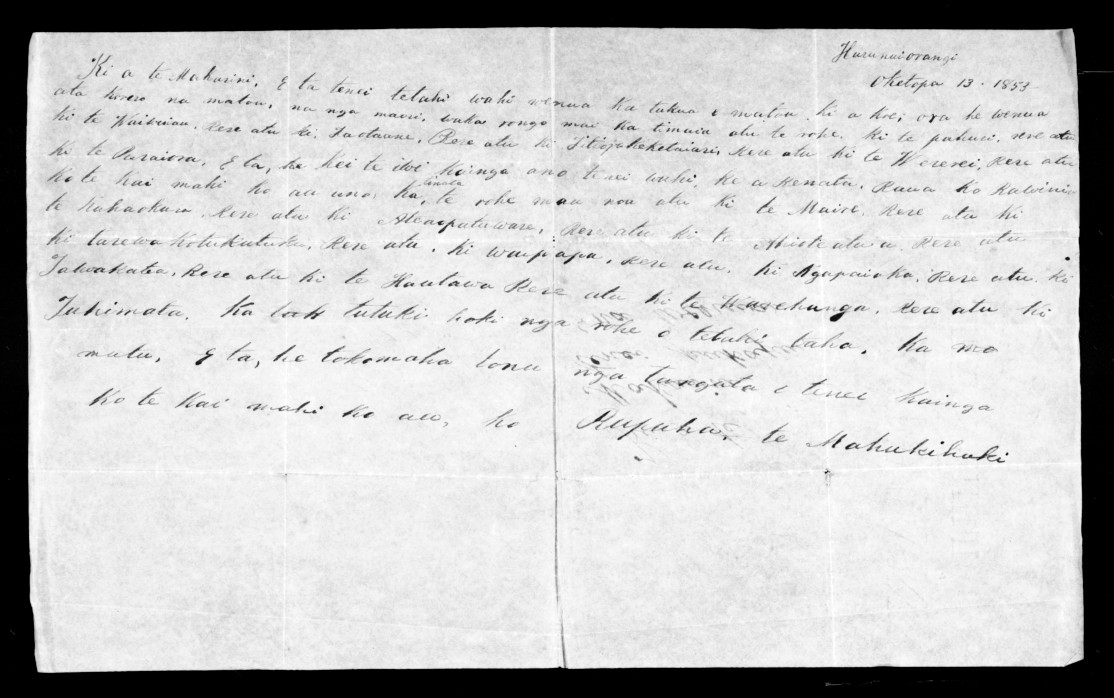 Hurunuiorangi
Oketopa 13 - 1853
Ki a te Makarini, E ta tenei tetahi wahi wenua ka tukua e matou ki a koe, ora he wenua
ata korero na matou, na nga maori, waka rongo mai, Ka timaia atu te rohe, ki te pahuri, rere atu
ki te Rere atu ki, Taotaune, Rere atu ki Rere atu ki te Wererei, Rere atu
ki te Puraiora, E ta, he kei te iwi Kainga ano tenei wahi, ke a Renata, Raua ko Rawinia
ko te kai mahi ko au ano, ka timata te rohe mau noa atu ki te Maire, Rere atu ki
te Kahaokura, Rere atu ki Rere atu ki te Rere atu
ki tarewa Kotukutuku, Rere atu, ki waipapa, rere atu, ki Ngapaiaka, Rere atu, ki
Tawakatea, Rere atu ki te Hautawa Rere atu ki te Warehanga, Rere atu ki
Tuhimata. Ka tutuki hoki nga rohe o tetahi taha, Ka mo
mutu, E ta, he tokomaha tonu nga tangata o tenei kainga
Ko te Kai mahi ko au, ko Rupuha, te Mahukihuki